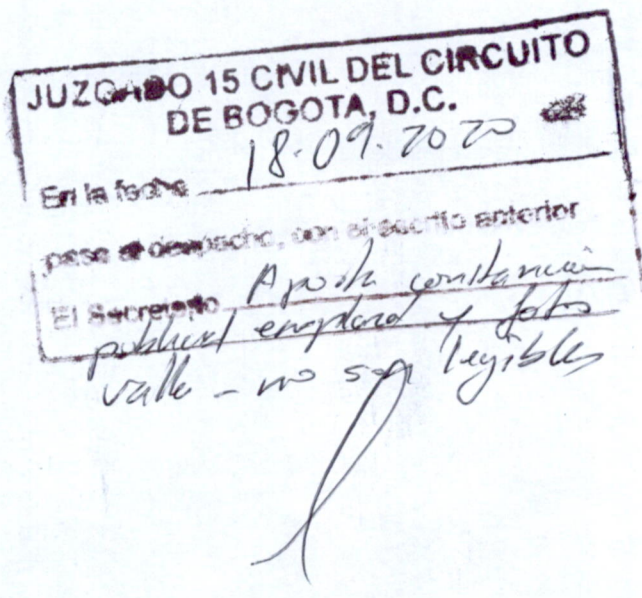 JUZGADO 15 CIVIL DEL CIRCUITO
DE BOGOTA, D.C.
En la fecha 18.09.2020
pasa al despacho, con el escrito anterior
El Secretario Aporta constancia
publicad emplard y fotos
valla - no son legibles